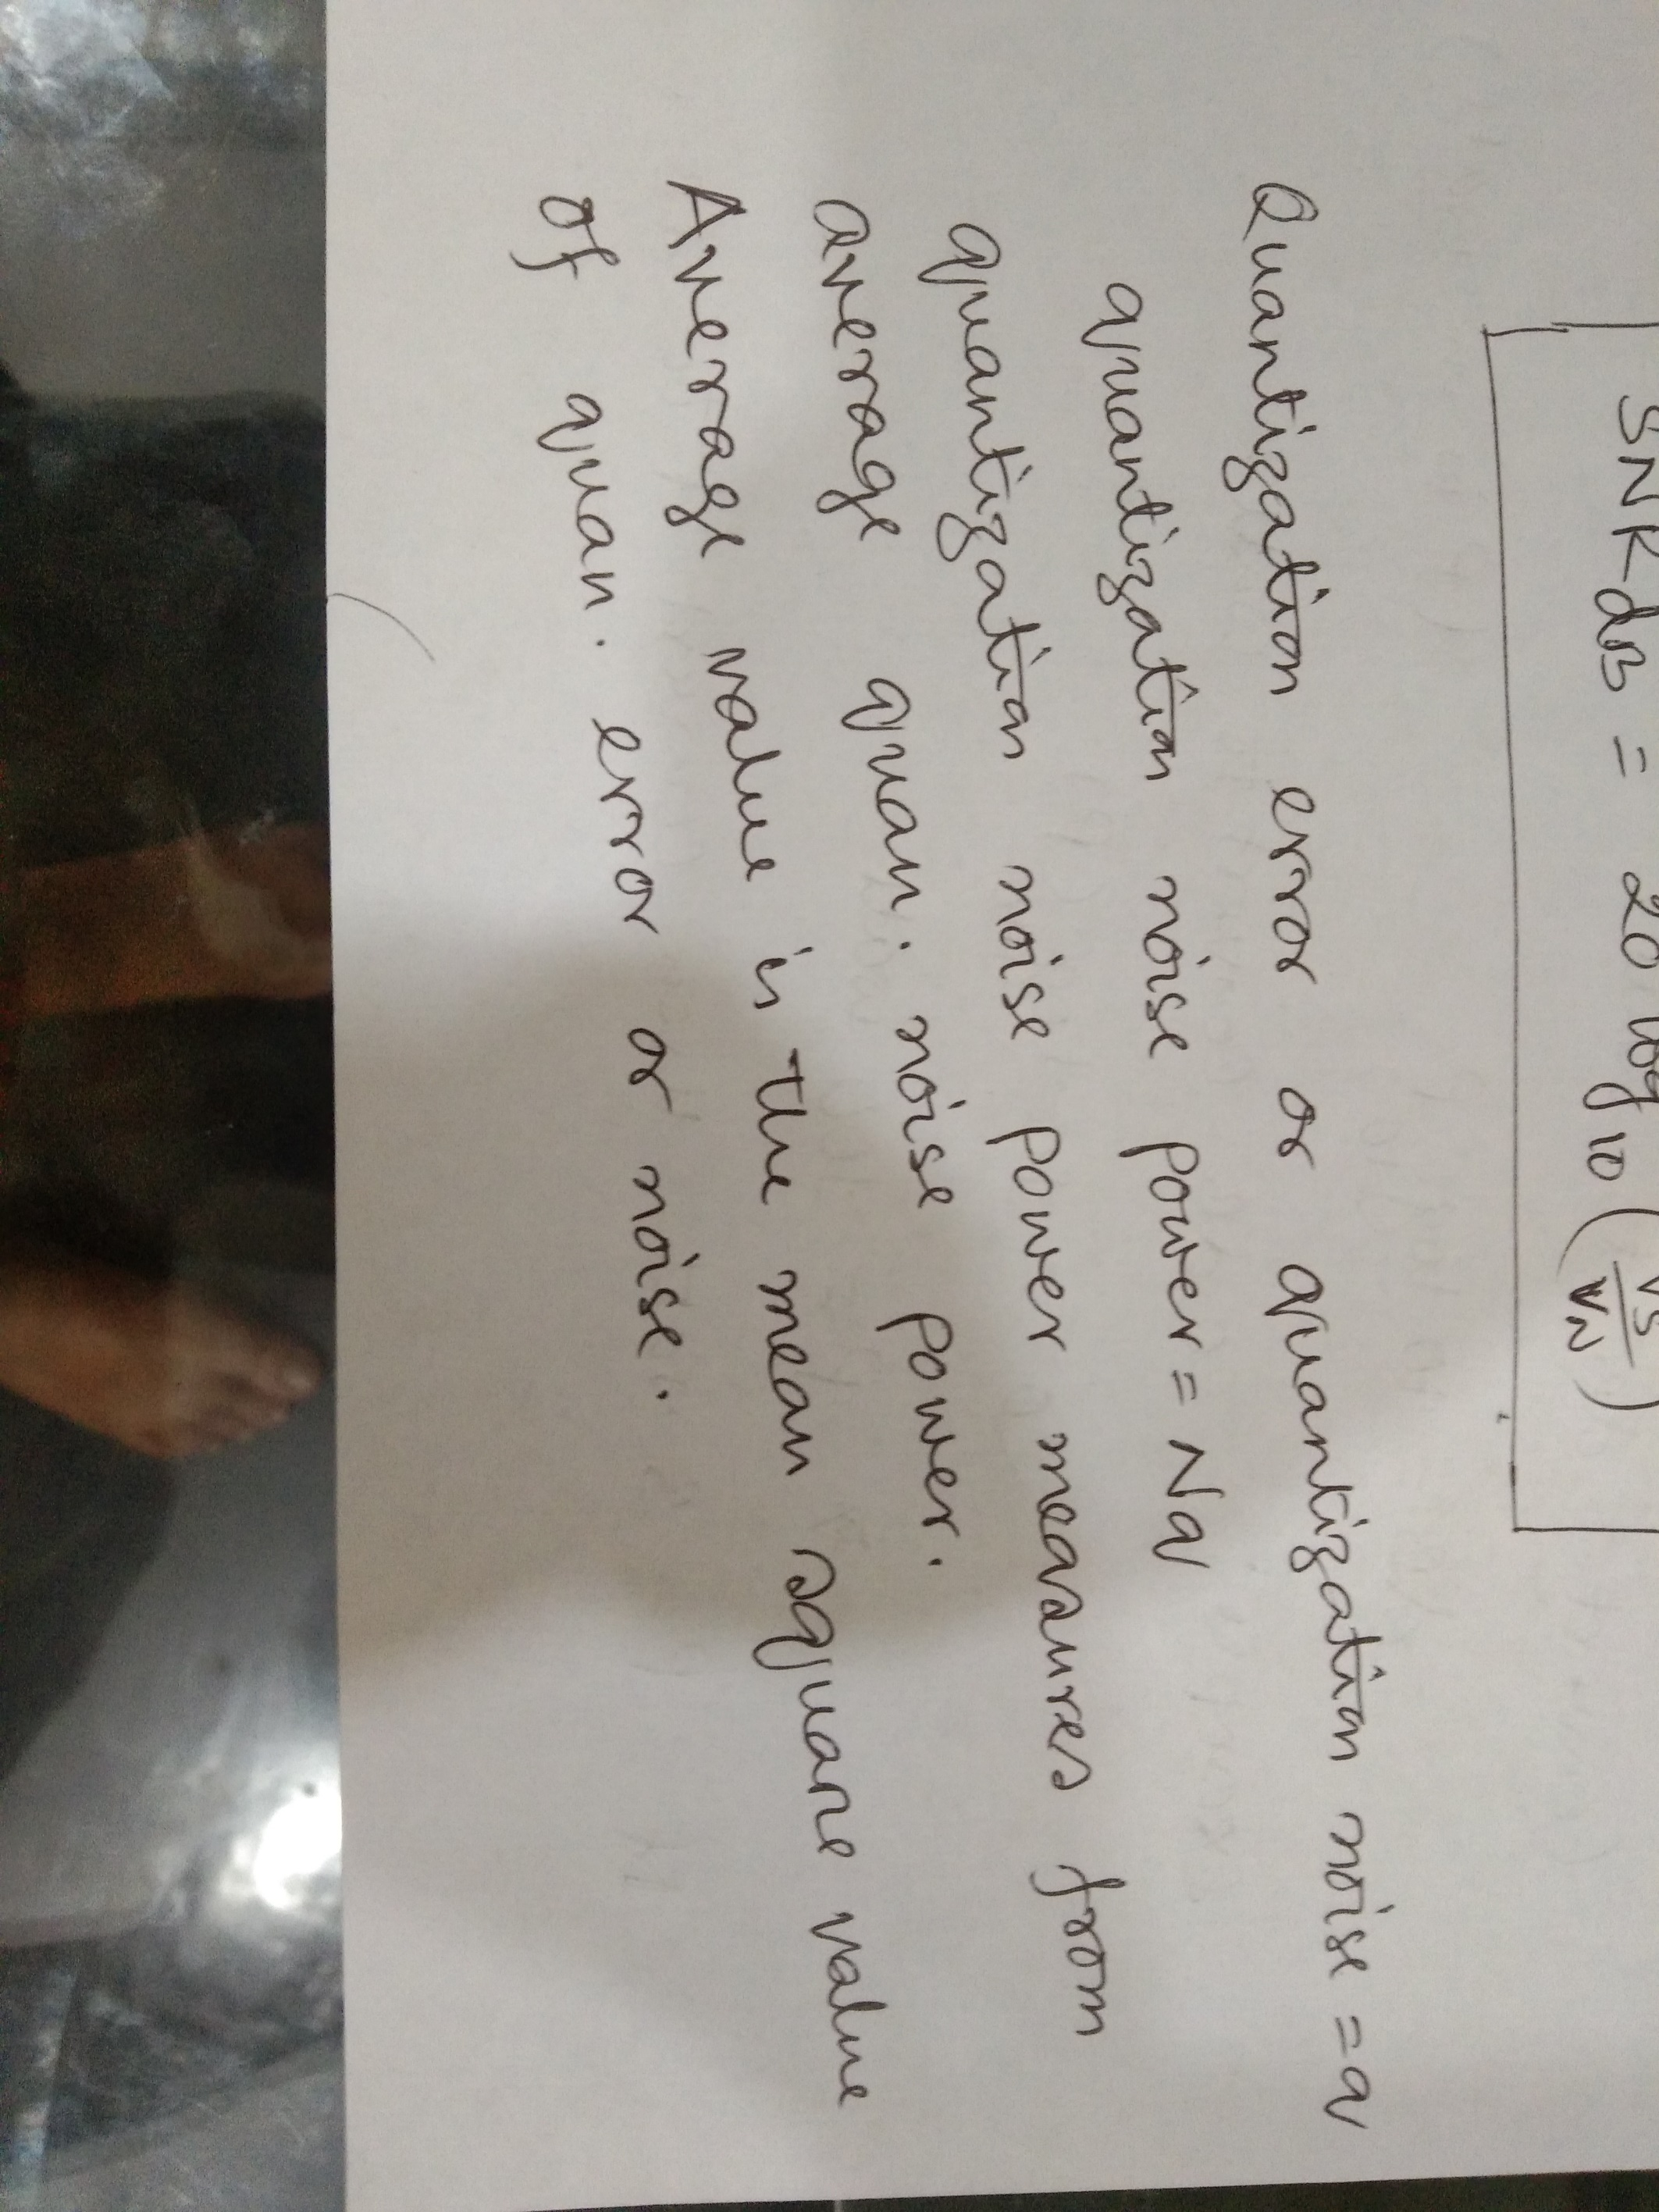 SNRdB = 20 log10 (VS/VN)
Quantization error or quantization noise = q
quantization noise power = Nq
quantization noise power measures from
average quan. noise power.
Average value is the mean square value
of quan. error or noise.